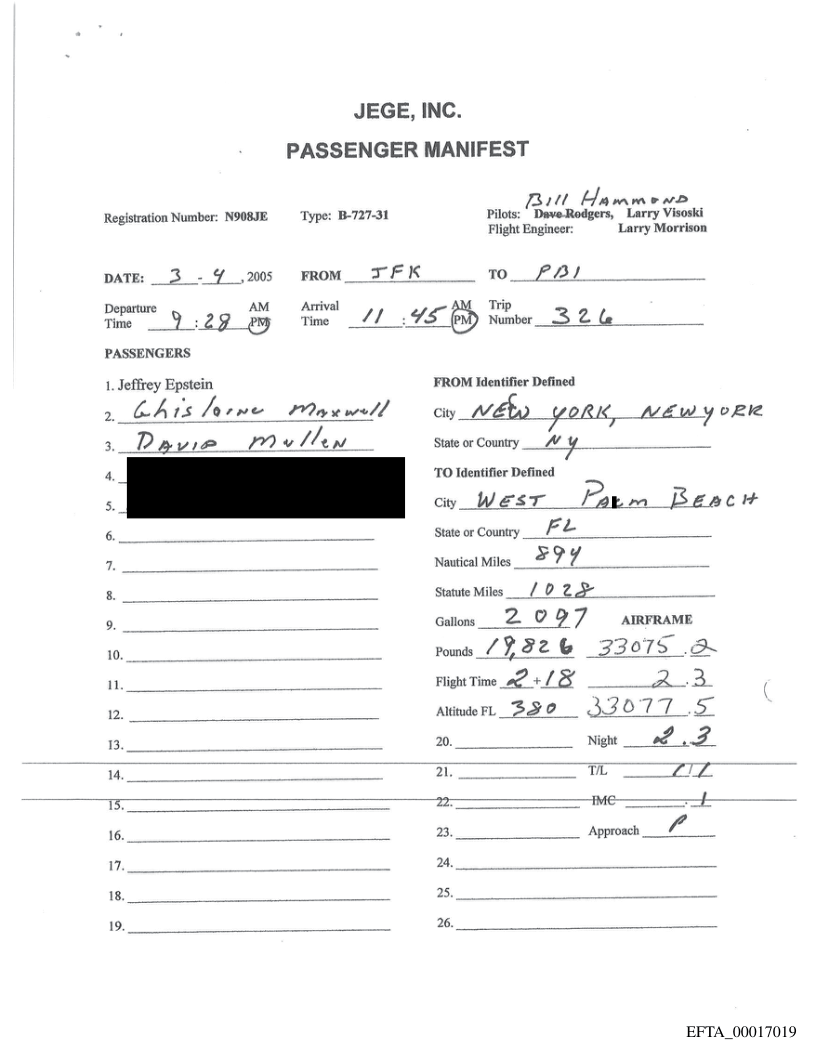 JEGE, INC.
PASSENGER MANIFEST
Bill Hammond
Registration Number: N908JE Type: B-727-31 Pilots: Dave Rodgers, Larry Visoski
Flight Engineer: Larry Morrison
DATE: 3 - 4, 2005 FROM JFK TO PBI
Departure Time 9:28 AM PM Arrival Time 11:45 AM PM Trip Number 326
PASSENGERS
1. Jeffrey Epstein
2. Ghislaine Maxwell
3. David Mullen
4.
5.
6.
7.
8.
9.
10.
11.
12.
13.
14.
15.
16.
17.
18.
19.
FROM Identifier Defined
City NEW YORK, NEW YORK
State or Country NY
TO Identifier Defined
City WEST PALM BEACH
State or Country FL
Nautical Miles 894
Statute Miles 1028
Gallons 2097 AIRFRAME
Pounds 19,826 33075.2
Flight Time 2+18 2.3
Altitude FL 380 33077.5
20. Night 2.3
21. T/L 1/1
22. IMC .1
23. Approach P
24.
25.
26.
EFTA_00017019